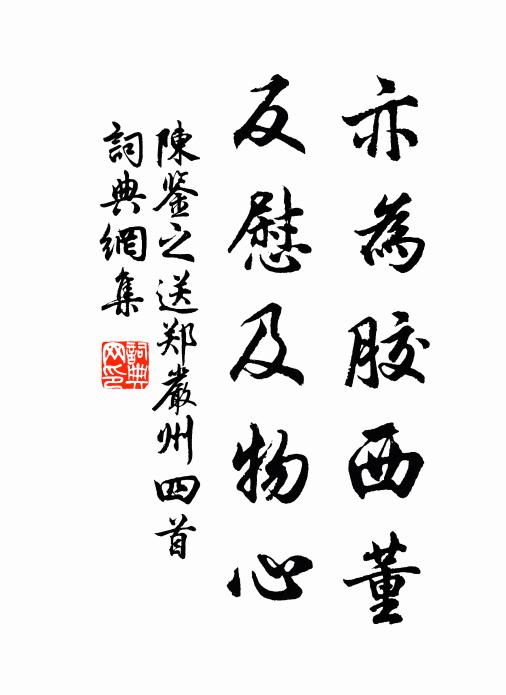 亦為膠西董
反慰及物心
陳鉴之送郑嚴州四首
詞典網集
詞典網印